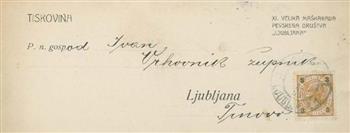 TISKOVINA
XI. VELIKA MAŠKARADA
PEVSKEGA DRUŠTVA
„LJUBLJANA“
P. n. gospod Ivan
Vrhovnik župnik
Ljubljana
Trnovo